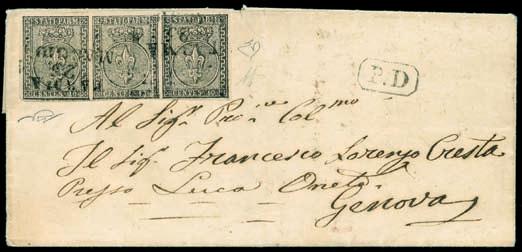 STATI PARM STATI PARM STATI PARM
CENTES. 10 CENTES. 10 CENTES. 10
P.D
Al Sigr. Pron. ve Col. mo
Il Sigr. Francesco Lorenzo Cresta
Presso Luca Oneto
Genova